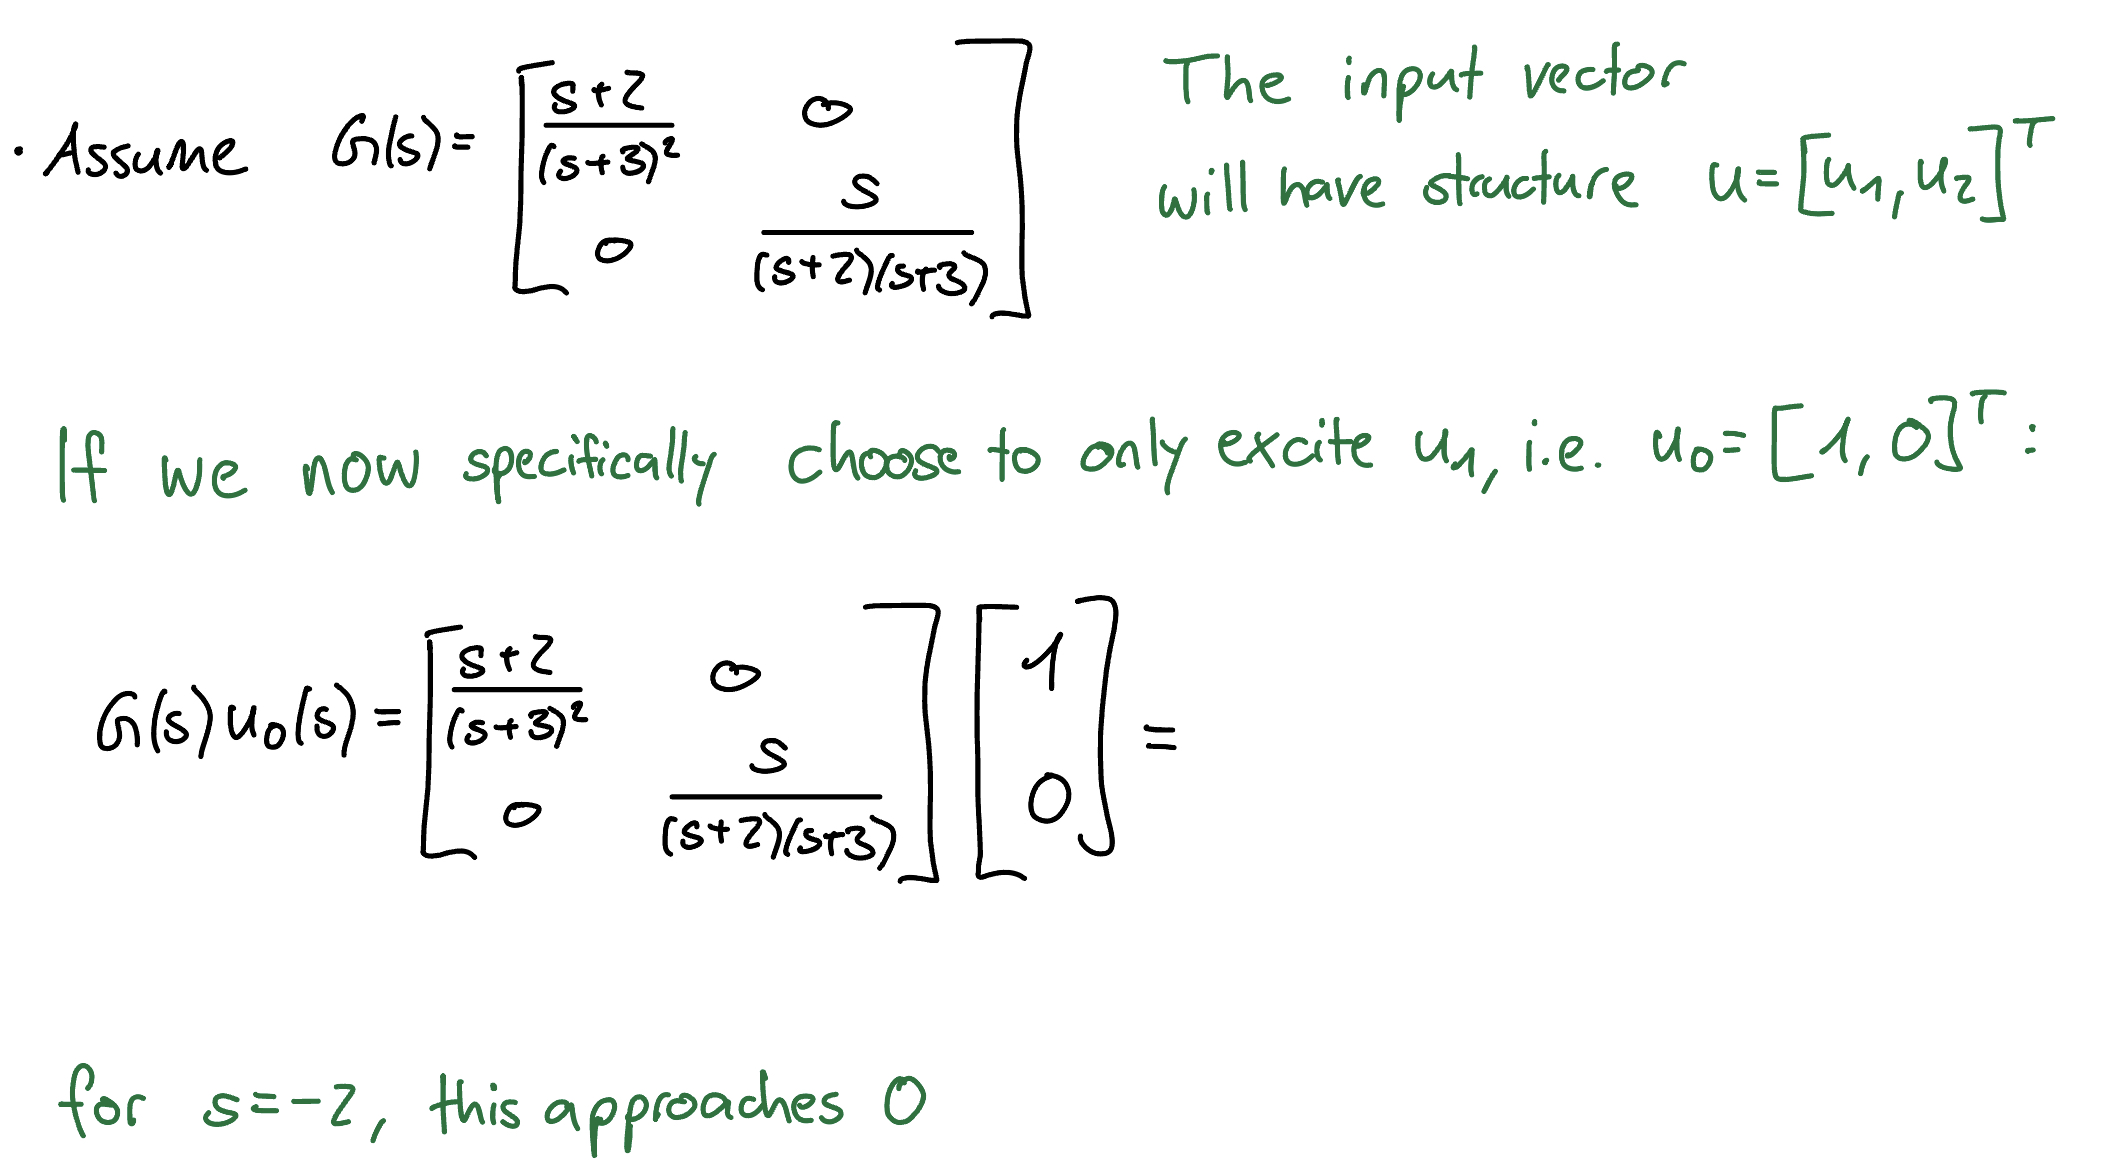 · Assume G(s) = [ (s+2)/(s+3)², 0 ; 0, s/((s+2)(s+3)) ] The input vector
will have structure u = [u₁, u₂]ᵀ
If we now specifically choose to only excite u₁, i.e. u₀ = [1, 0]ᵀ :
G(s) u₀(s) = [ (s+2)/(s+3)², 0 ; 0, s/((s+2)(s+3)) ] [ 1 ; 0 ] =
for s = -2, this approaches 0